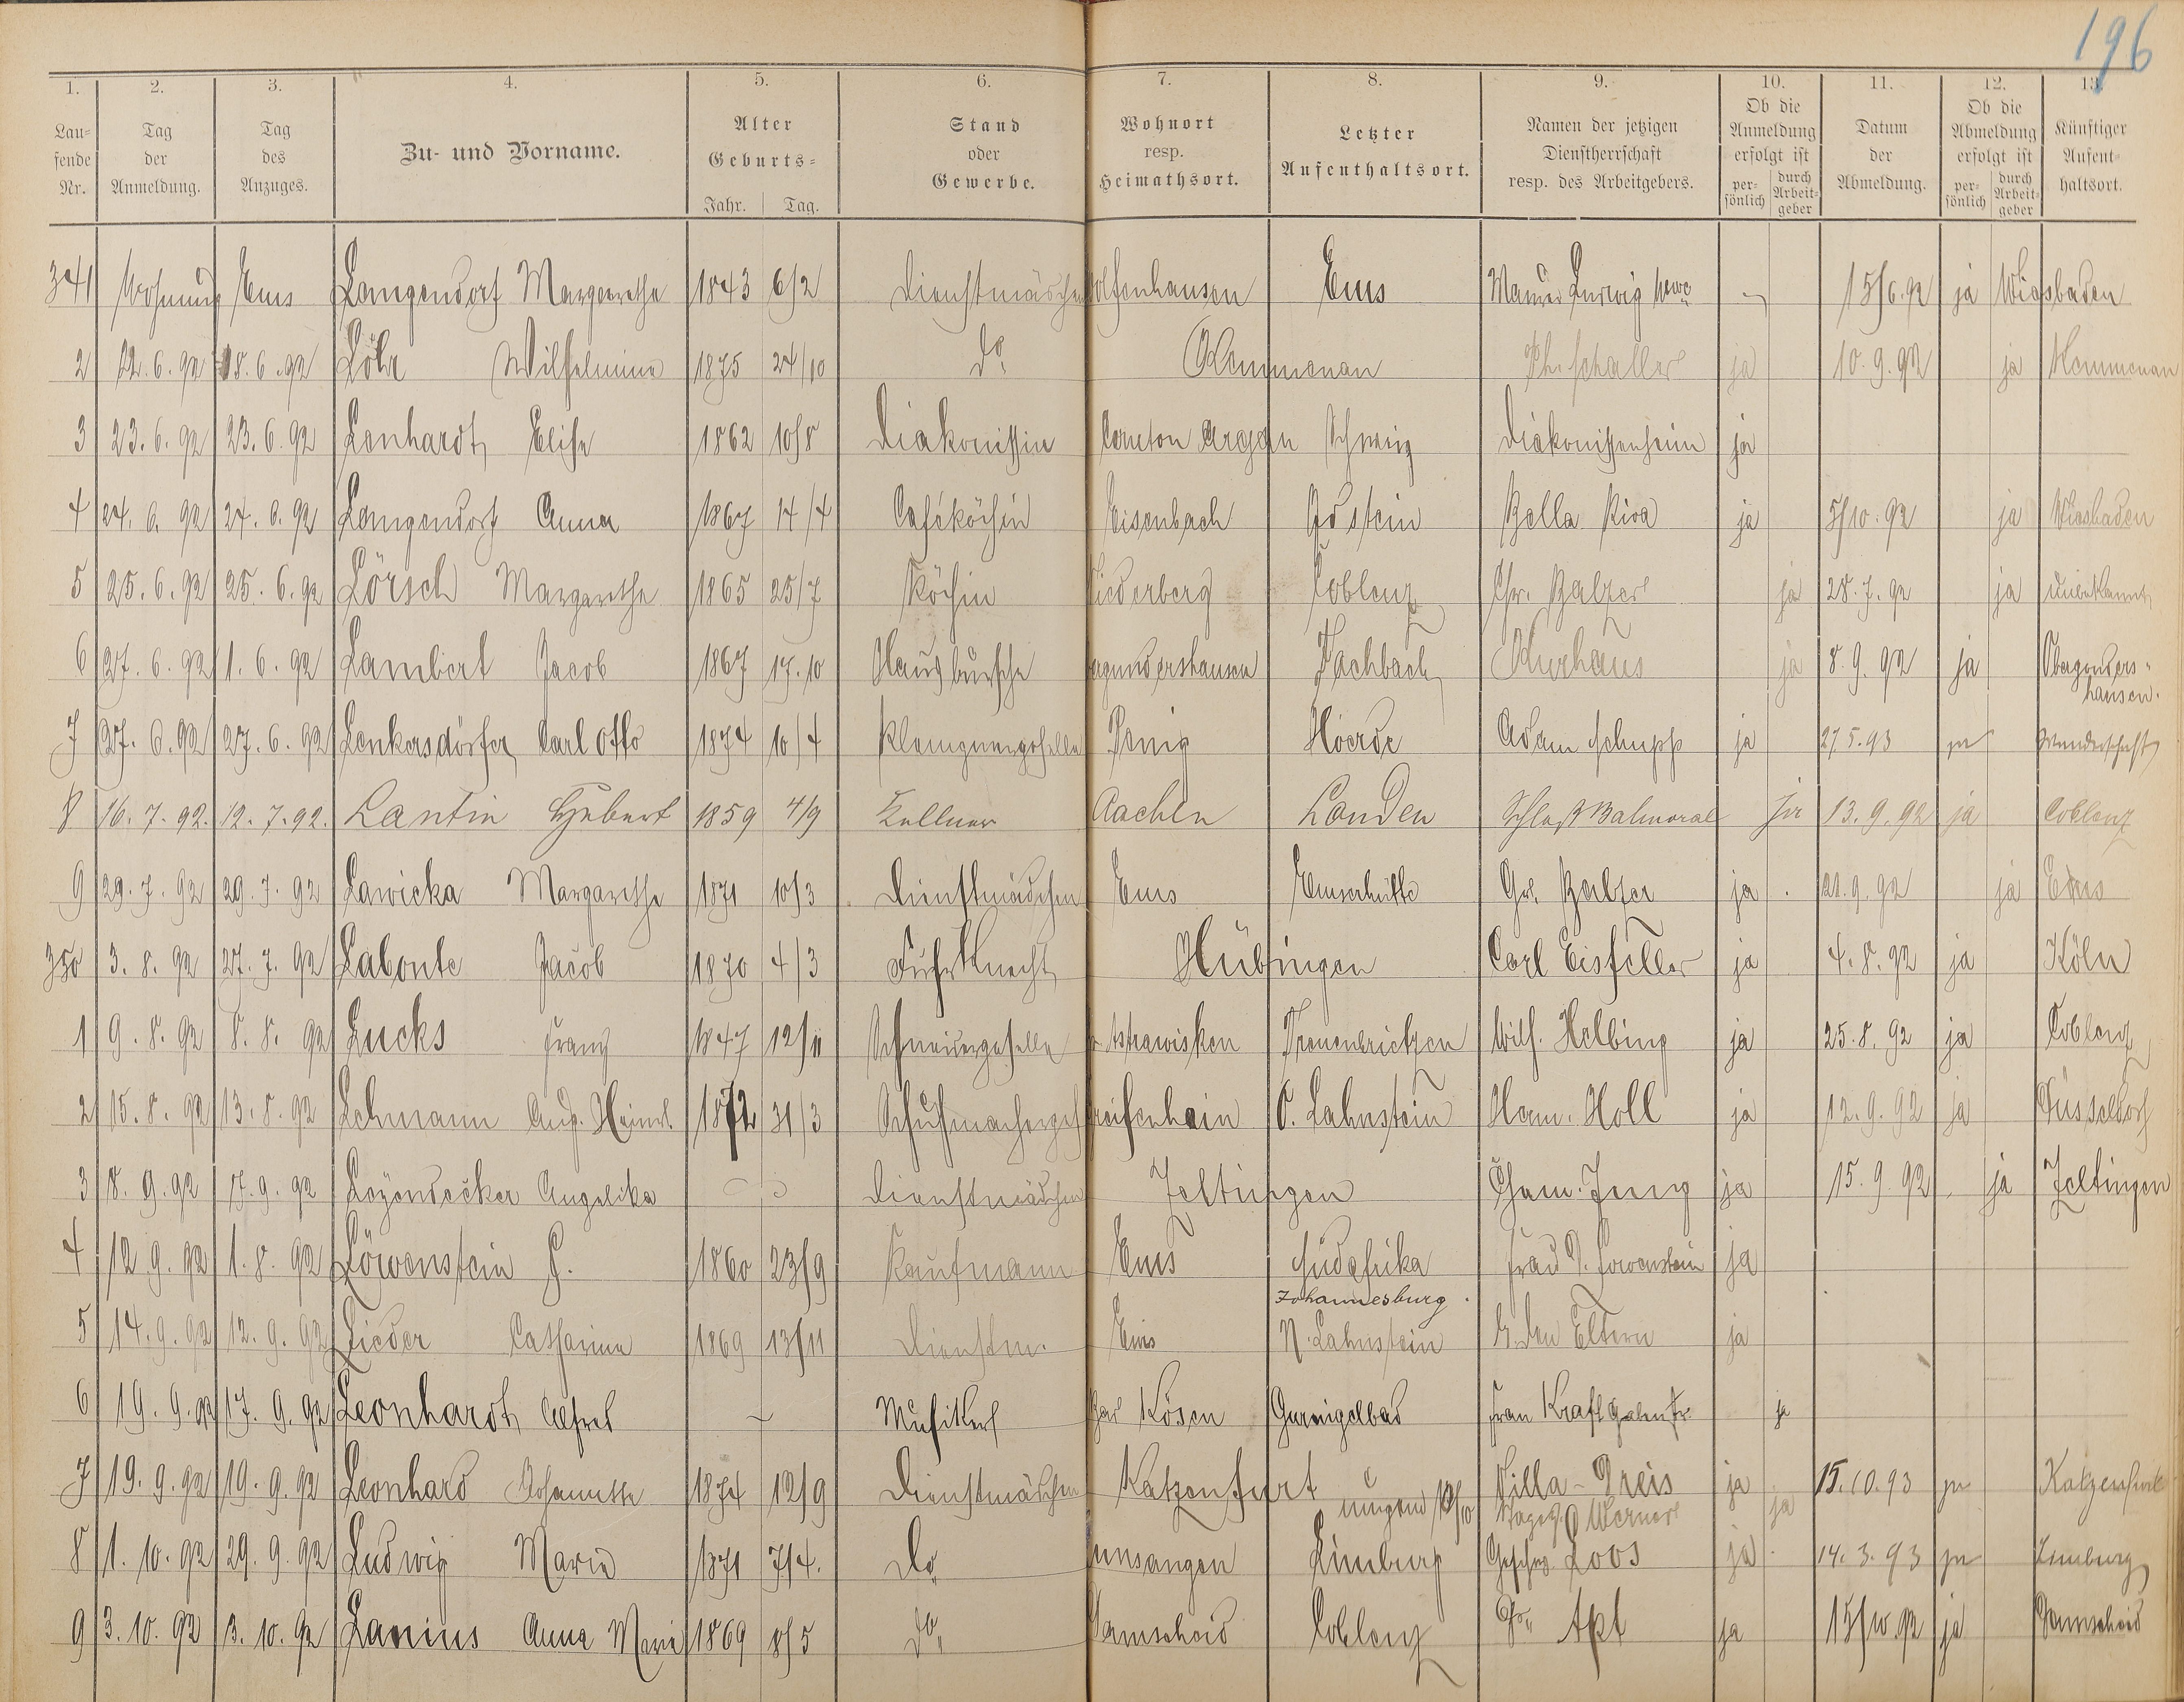 196
1. 2. 3. 4. 5. 6. 7. 8. 9. 10. 11. 12. 13.
Lau=fende Nr. Tag der Anmeldung. Tag des Anzuges. Zu- und Vorname. Alter Geburts= Jahr. Tag. Stand oder Gewerbe. Wohnort resp. Heimathsort. Letzter Aufenthaltsort. Namen der jetzigen Dienstherrschaft resp. des Arbeitgebers. Ob die Anmeldung erfolgt ist per=sönlich durch Arbeit=geber Datum der Abmeldung. Ob die Abmeldung erfolgt ist per=sönlich durch Arbeit=geber Künftiger Aufent=haltsort.
341 Wohnung Ems Langendorf Margarethe 1843 6/2 Dienstmädchen Wolfenhausen Ems Ludwig 15/6.92 ja Wiesbaden
2 22.6.92 18.6.92 Löhr Wilhelmine 1875 24/10 do Kemmenau Ph. Schaller ja 10.9.92 ja Kemmenau
3 23.6.92 23.6.92 Lenhardt Elise 1862 10/8 Diakonissin Canton Argau Schweiz Diakonissenheim ja
4 24.6.92 24.6.92 Langendorf Anna 1867 14/4 Caféköchin Eisenbach Idstein Bella Riva ja 5/10.92 ja Wiesbaden
5 25.6.92 25.6.92 Lörsch Margarethe 1865 25/7 Köchin Niederberg Coblenz Chr. Balzer ja 28.7.92 ja unbekannt
6 27.6.92 1.6.92 Lambert Jacob 1867 17.10 Hausbursche Fachbach Kurhaus ja 8.9.92 ja Obergonders=
hausen.
7 27.6.92 27.6.92 Lenkersdörfer Carl Otto 1874 10/4 Klempnergeselle Penig Hoerde Adam Schupp ja 27.5.93 ja Wanderschaft
8 16.7.92. 12.7.92. Lantin Hubert 1859 4/9 Kellner Aachen London Schloß Balmoral ja 13.9.92 ja Coblenz
9 29.7.92 29.7.92 Lawicka Margarethe 1871 10/3 Dienstmädchen Ems Emserhütte Balzer ja 21.9.92 ja Ems
350 3.8.92 27.7.92 Labonte Jacob 1870 4/3 Fuhrknecht Hübingen Carl Eisfeller ja 4.8.92 ja Köln
1 9.8.92 8.8.92 Lucks Franz 1847 12/11 Schneidergeselle Treuenbrietzen Wilh. Helbing ja 25.8.92 ja Coblenz
2 15.8.92 13.8.92 Lehmann Aug. Heinr. 1872 31/3 Schuhmacherges Greifenhain O. Lahnstein Herm. Holl ja 12.9.92 ja Düsseldorf
3 8.9.92 7.9.92 Leyendecker Angelika Dienstmädchen Zeltingen Jung ja 15.9.92 ja Zeltingen
4 12.9.92 1.8.92 Löwenstein G. 1860 23/9 Kaufmann Ems Südafrika Frau D. Löwenstein ja
Johannesburg.
5 14.9.92 12.9.92 Lieder Catharina 1869 13/11 Dienstm. Ems N. Lahnstein b. den Eltern ja
6 19.9.92 17.9.92 Leonhardt Alfred Musiker Bad Kösen Gurnigelbad Frau Kraft ja
7 19.9.92 19.9.92 Leonhard Johannette 1874 12/9 Dienstmädchen Katzenfurt Villa-Greis ja 15.10.93 ja Katzenfurt
Werner ja
8 1.10.92 29.9.92 Ludwig Maria 1871 7/4. do Limburg Geschw. Loos ja 14.3.93 ja Limburg
9 3.10.92 3.10.92 Lanius Anna Maria 1869 8/5 do Damscheid Coblenz Apt ja 15/10.92 ja Damscheid